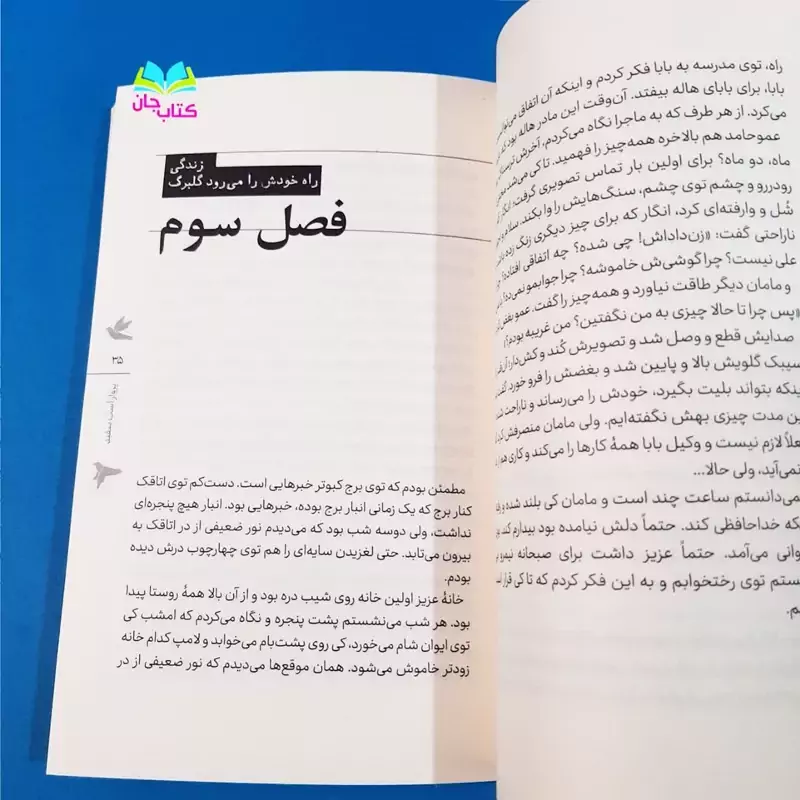 کتاب جان
راه، توی مدرسه به بابا فکر کردم و اینکه آن اتفاق
بابا، برای بابای هاله بیفتد. آن‌وقت این مادر هاله بود که
می‌کرد. از هر طرف که به ماجرا نگاه می‌کردم، آخرش
عموحامد هم بالاخره همه‌چیز را فهمید.
ماه، دو ماه؟ برای اولین بار تماس تصویری گرفت؛ انگار
رودررو و چشم توی چشم، سنگ‌هایش را وا بکند.
شُل و وارفته‌ای کرد، انگار که برای چیز دیگری زنگ زده
ناراحتی گفت: «زن‌داداش! چی شده؟ چه اتفاقی افتاده؟
علی نیست؟ چرا گوشی‌ش خاموشه؟ چرا جوابمو نمی‌ده؟
و مامان دیگر طاقت نیاورد و همه‌چیز را گفت. عمو بغض
«پس چرا تا حالا چیزی به من نگفتین؟ من غریبه بودم؟»
صدایش قطع و وصل شد و تصویرش کُند و کش‌دار؛
سیبک گلویش بالا و پایین شد و بغضش را فرو خورد. گفت
اینکه بتواند بلیت بگیرد، خودش را می‌رساند و ناراحت
این مدت چیزی بهش نگفته‌ایم. ولی مامان منصرفش
فعلاً لازم نیست و وکیل بابا همهٔ کارها را می‌کند و کاری
نمی‌آید، ولی حالا...
نمی‌دانستم ساعت چند است و مامان کی بلند شده
که خداحافظی کند. حتماً دلش نیامده بود بیدارم کند.
می‌آمد. حتماً عزیز داشت برای صبحانه نیمرو
توی رختخوابم و به این فکر کردم که تا کی قرار
زندگی
راه خودش را می‌رود گلبرگ
فصل سوم
۳۵
مطمئن بودم که توی برج کبوتر خبرهایی است. دست‌کم توی اتاقک
کنار برج که یک زمانی انبار برج بوده، خبرهایی بود. انبار هیچ پنجره‌ای
نداشت، ولی دوسه شب بود که می‌دیدم نور ضعیفی از در اتاقک به
بیرون می‌تابد. حتی لغزیدن سایه‌ای را هم توی چهارچوب درش دیده
بودم.
خانهٔ عزیز اولین خانه روی شیب دره بود و از آن بالا همهٔ روستا پیدا
بود. هر شب می‌نشستم پشت پنجره و نگاه می‌کردم که امشب کی
توی ایوان شام می‌خورد، کی روی پشت‌بام می‌خوابد و لامپ کدام خانه
زودتر خاموش می‌شود. همان موقع‌ها می‌دیدم که نور ضعیفی از در